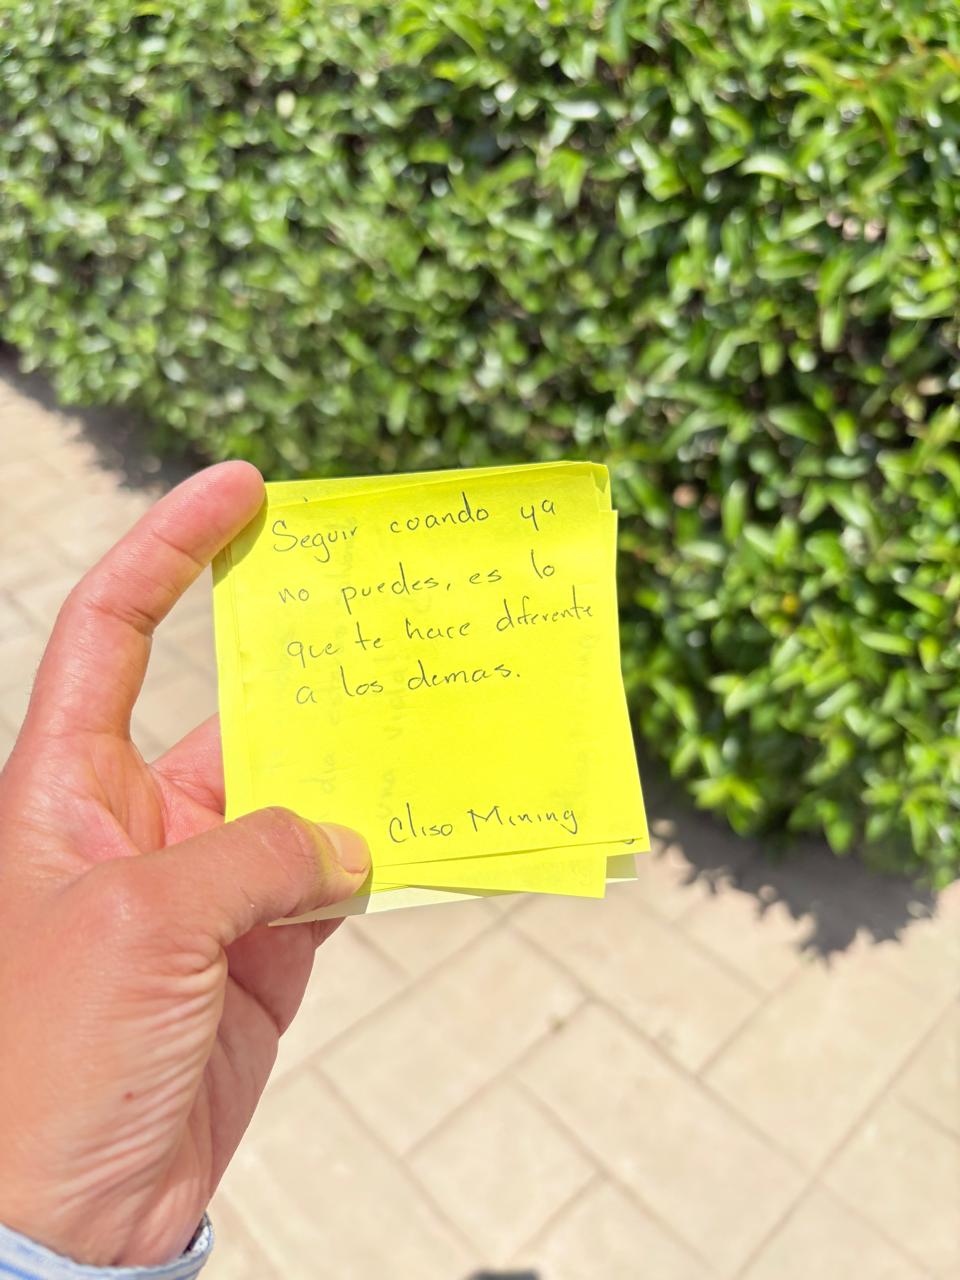 Seguir cuando ya
no puedes, es lo
que te hace diferente
a los demas.
Cliso Mining